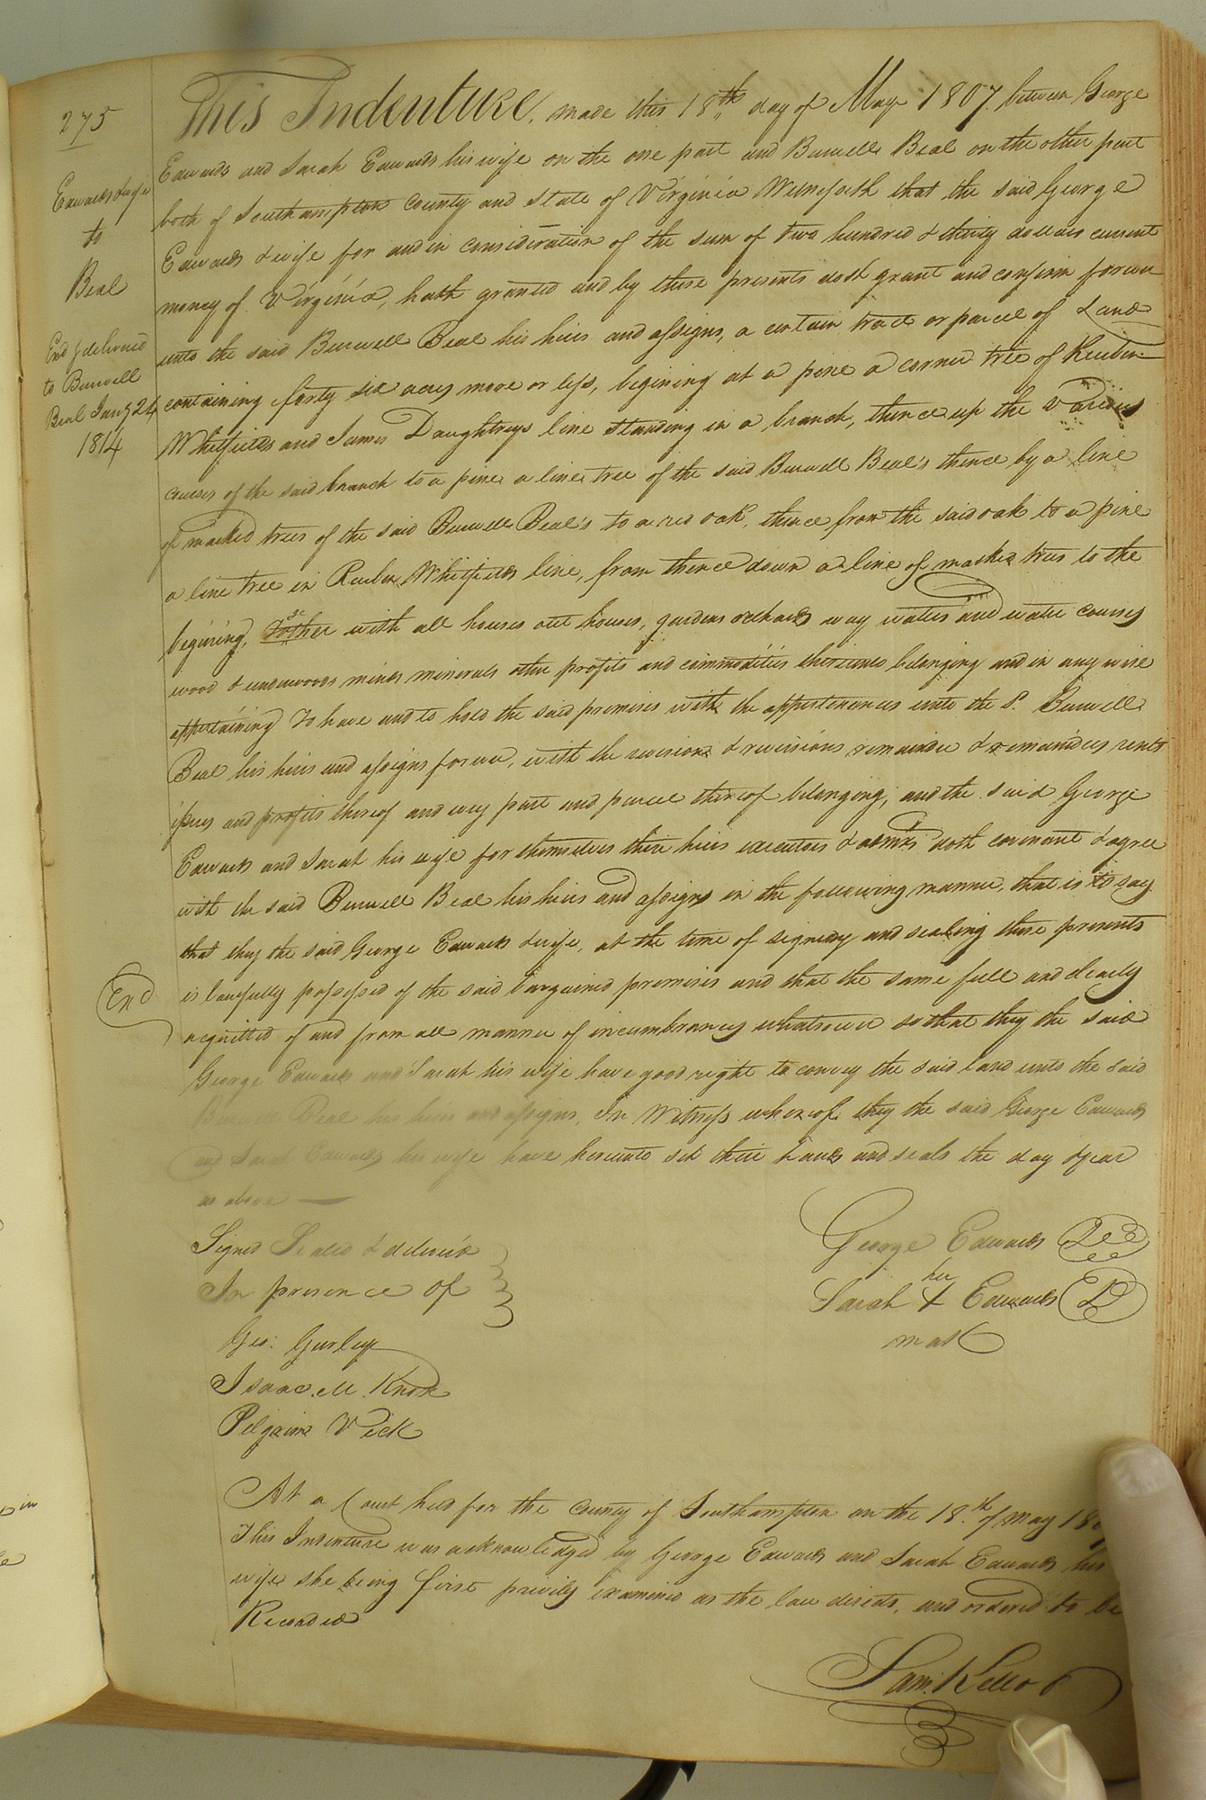 275
Edwards & wife
to
Beal
Exd & delivered
to Burwell
Beal Jany 24
1814
This Indenture, made this 18th day of May 1807 between George
Edwards and Sarah Edwards his wife on the one part and Burwell Beal on the other part
both of Southampton County and State of Virginia Witnesseth that the said George
Edwards & wife for and in consideration of the sum of two hundred & thirty dollars current
money of Virginia, hath granted and by these presents doth grant and confirm forever
unto the said Burwell Beal his heirs and assigns, a certain tract or parcel of Land
containing forty six acres more or less, begining at a pine a corner tree of Reuben
Whitfields and James Daughtreys line standing in a branch, thence up the various
courses of the said branch to a pine a line tree of the said Burwell Beal's thence by a line
of marked trees of the said Burwell Beal's to a red oak, thence from the said oak to a pine
a line tree in Reuben Whitfields line, from thence down a line of marked trees to the
begining, with all houses out houses, gardens orchards way waters and water courses
wood & underwoods mines minerals other profits and commodities thereunto belonging and in any wise
appertaining To have and to hold the said premises with the appertenances unto the sd. Burwell
Beal his heirs and assigns forever, with the revision & revisions remainder & remainders rents
issues and profits thereof and every part and parcel thereof belonging, and the said George
Edwards and Sarah his wife for themselves their heirs executors & admrs doth covenant & agree
with the said Burwell Beal his heirs and assigns in the following manner, that is to say
that they the said George Edwards & wife, at the time of signing and sealing these presents
is lawfully possessed of the said bargained premises and that the same full and clearly
Exd
acquitted of and from all manner of incumbrances whatsoever so that they the said
George Edwards and Sarah his wife have good right to convey the said land unto the said
Burwell Beal his heirs and assigns, In Witness whereof they the said George Edwards
and Sarah Edwards his wife have hereunto set their hands and seals the day & year
as above —
Signed Sealed & deliver'd
In presence of
Geo: Gurley
Isaac M. Knox
Pilgrim Vick
George Edwards LS
her
Sarah X Edwards LS
mark
At a Court held for the County of Southampton on the 18th of May 180
This Indenture was acknowledged by George Edwards and Sarah Edwards his
wife she being first privily examined as the law directs, and ordered to be
Recorded
Sam. Kello